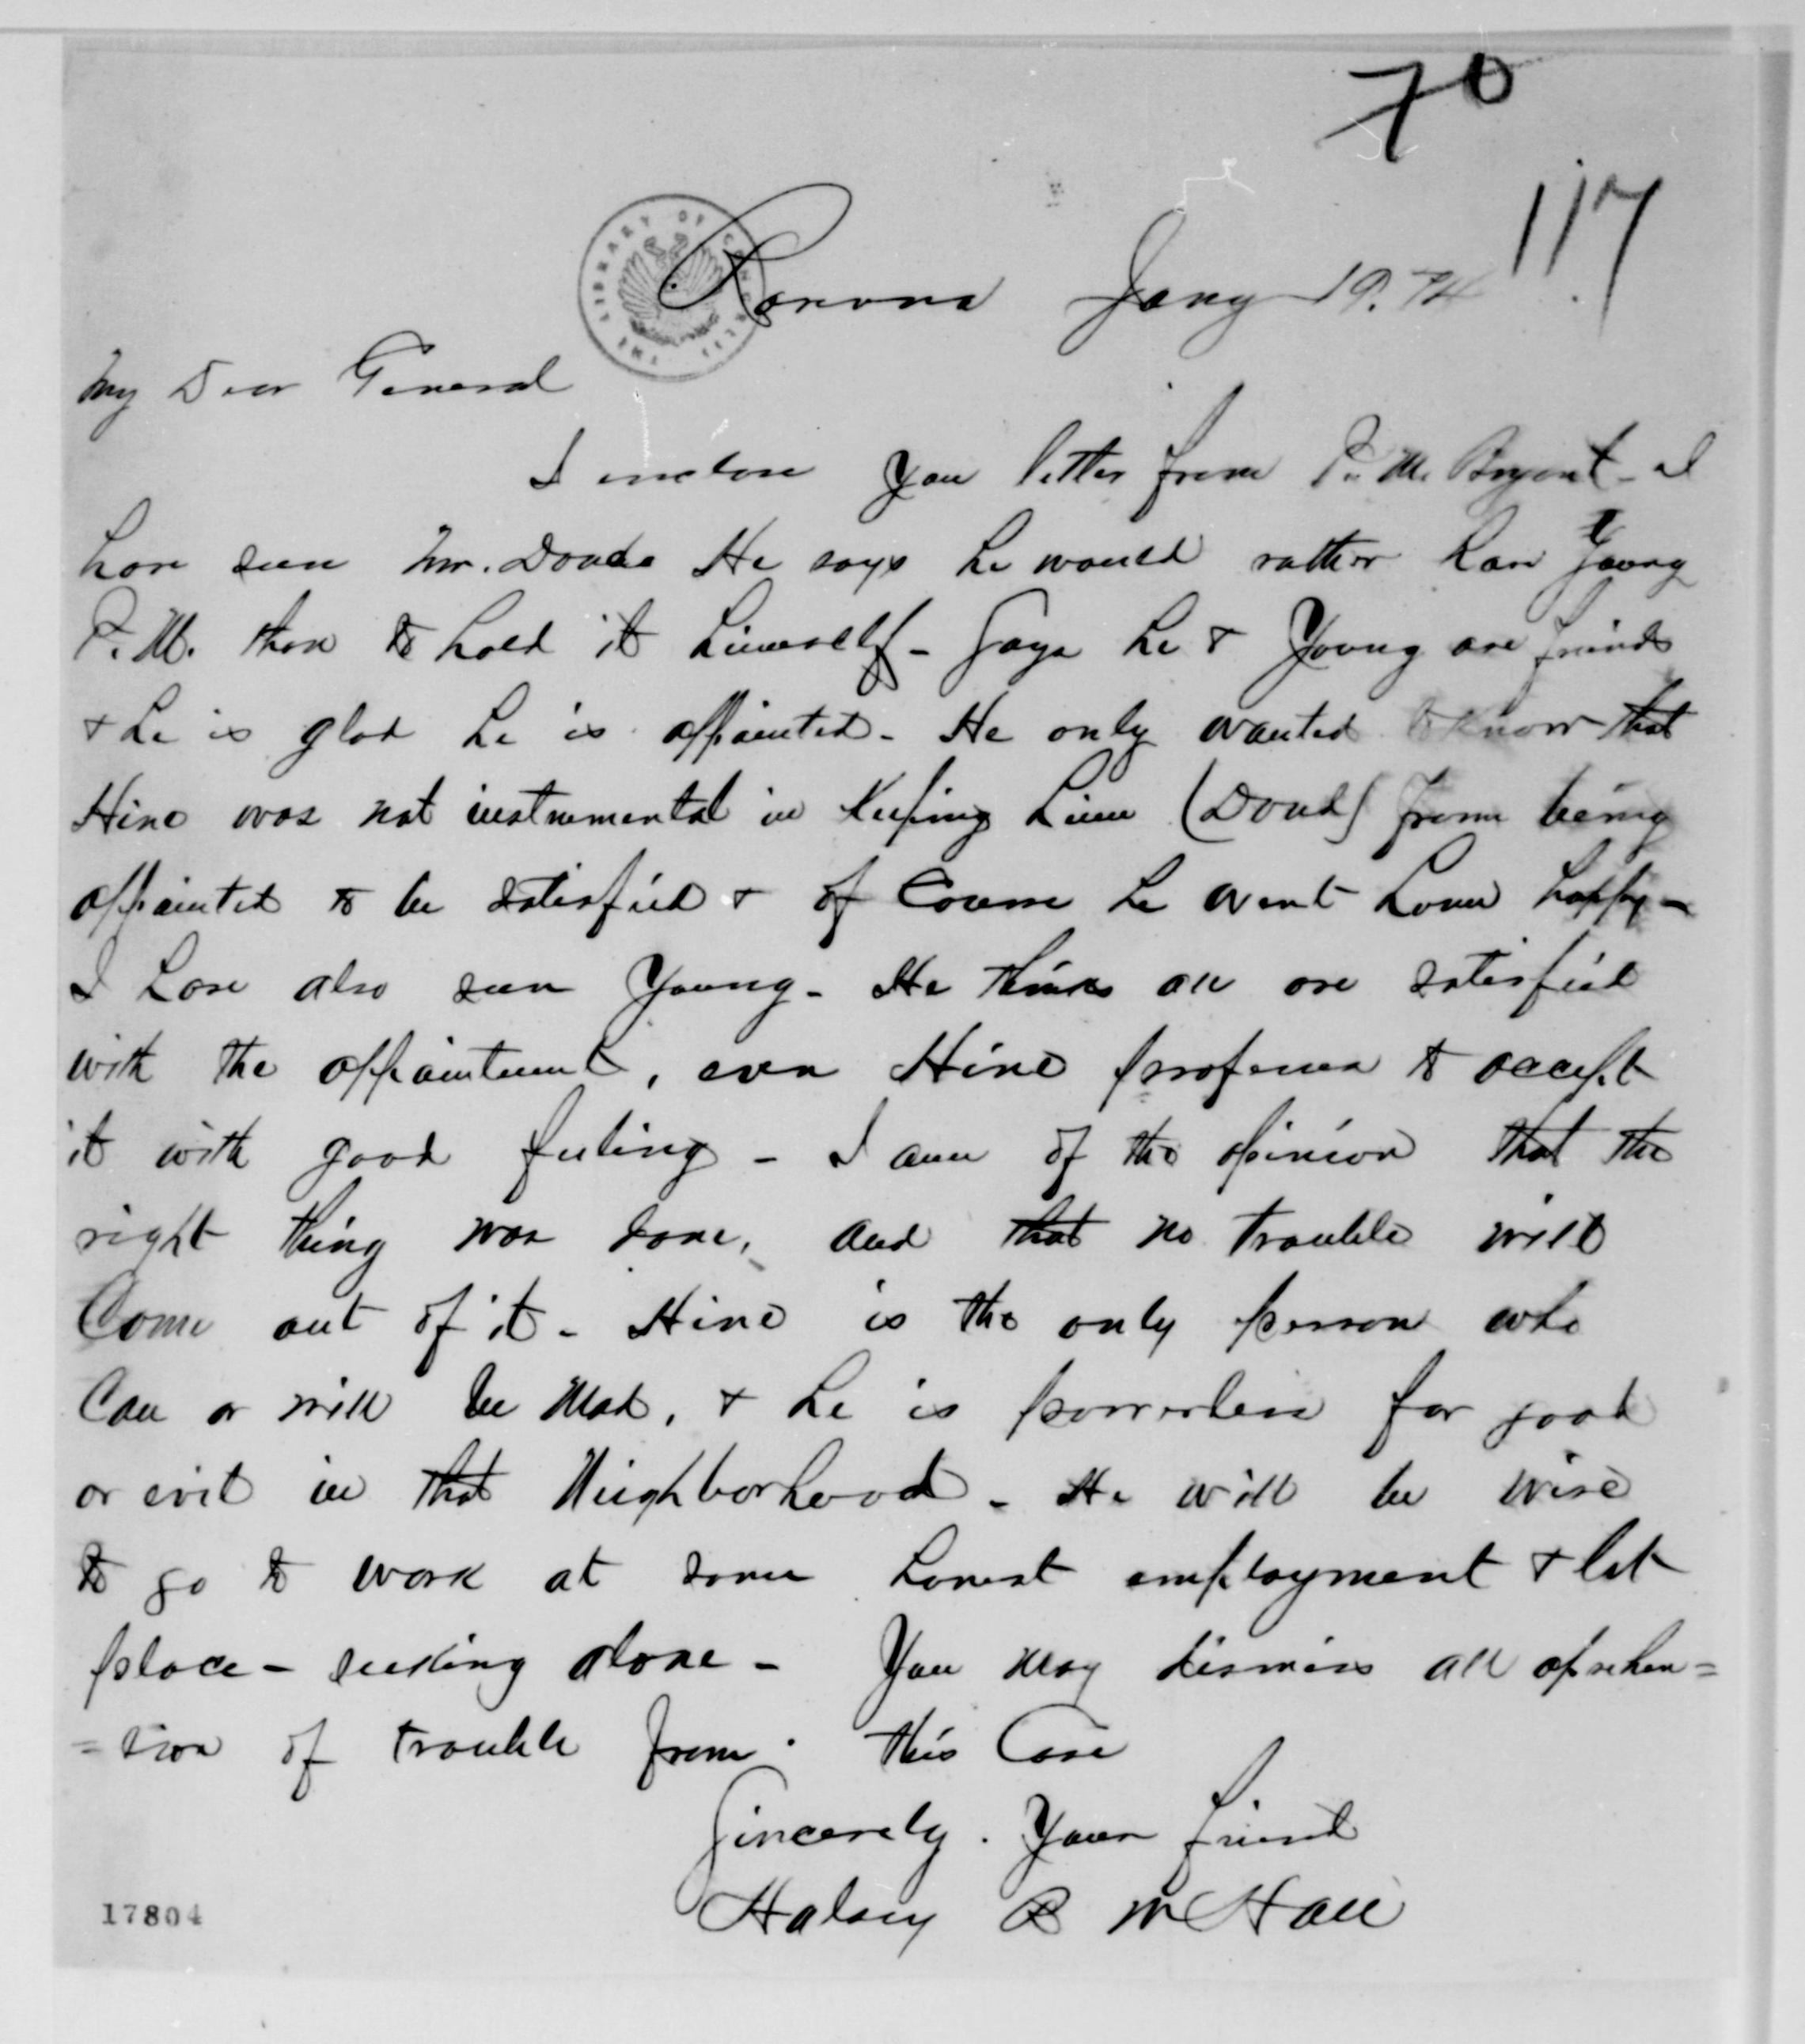 70
117
THE LIBRARY OF CONGRESS
Ravenna Jany 19. 74
My Dear General
I enclose you letter from P. M. Bryant - I
have seen Mr. Doud. He says he would rather have Young
P. M. than to hold it himself - Says he & Young are friends
& he is glad he is appointed - He only wanted to know that
Hine was not instrumental in keeping him (Doud) from being
appointed to be satisfied & of Course he went home happy -
I have also seen Young - He thinks all are satisfied
with the appointment, even Hine professes to accept
it with good feeling - I am of the opinion that the
right thing was done, and that no trouble will
Come out of it - Hine is the only person who
Can or will be Mad, & he is powerless for good
or evil in that Neighborhood - He will be wise
to go to work at some honest employment & let
place - seeking alone - You may dismiss all aprehen=
=sion of trouble from this Case
Sincerely Your friend
Halsey R W Hall
17804